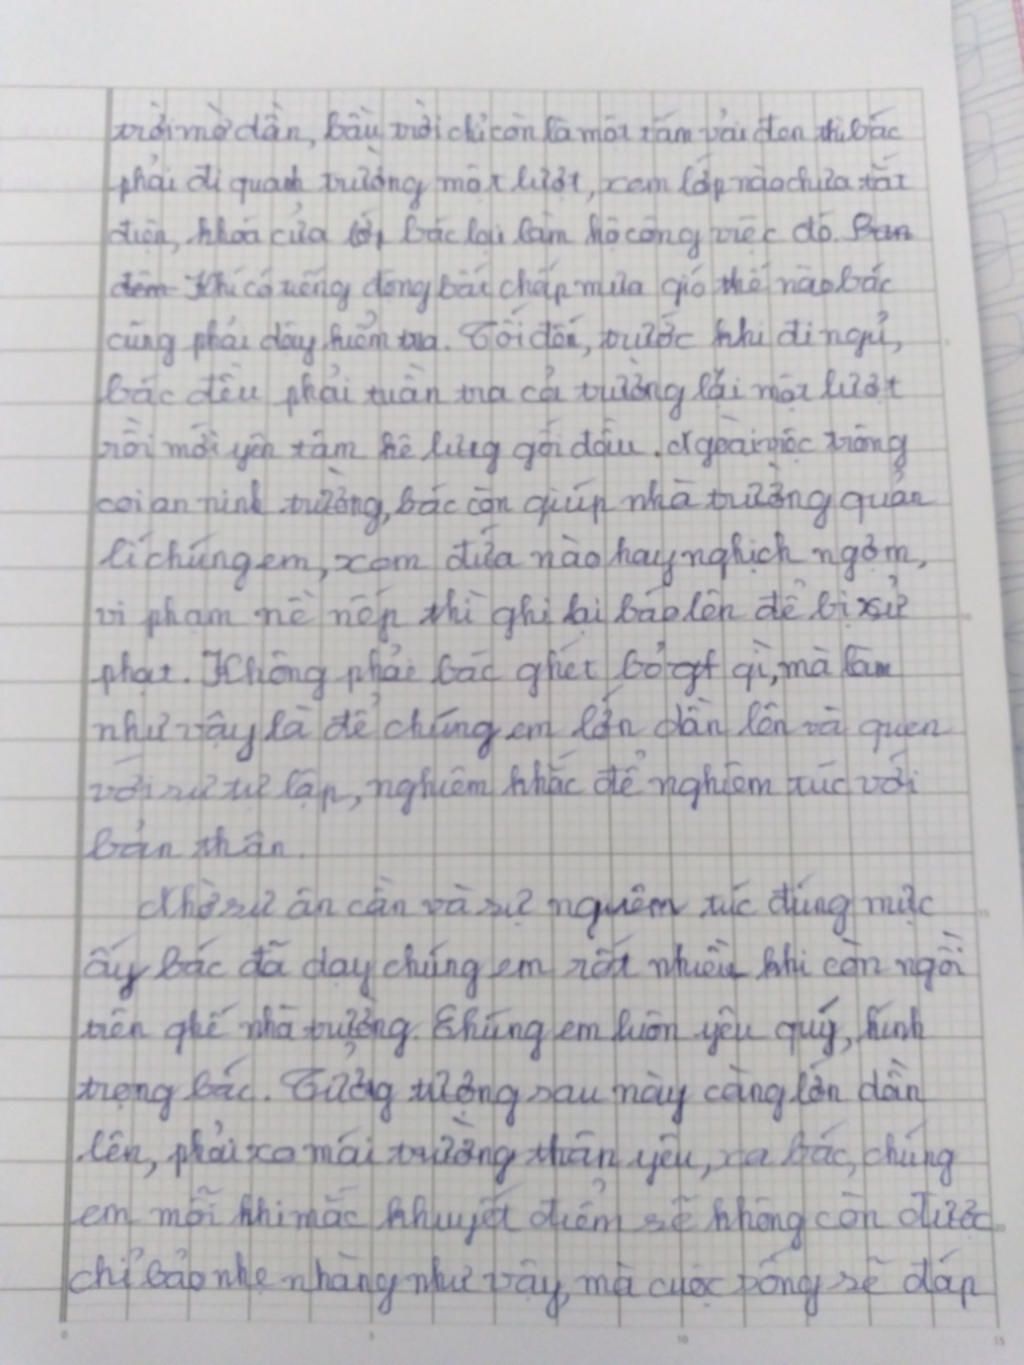 trời mờ dần, bầu trời chỉ còn là một tấm vải đen thì bác
phải đi quanh trường một lượt, xem lớp nào chưa tắt
điện, khoá cửa lớp bác lại làm hộ công việc đó. Ban
đêm Khi có tiếng động bất chấp mưa gió thế nào bác
cũng phải dậy kiểm tra. Tối đến, trước khi đi ngủ,
bác đều phải tuần tra cả trường lại một lượt
rồi mới yên tâm kê lưng gối đầu. Ngoài việc trông
coi an ninh trường, bác còn giúp nhà trường quản
lí chúng em, xem đứa nào hay nghịch ngợm,
vi phạm nề nếp thì ghi lại báo lên để bị xử
phạt. Không phải bác ghét bỏ gì, mà làm
như vậy là để chúng em lớn dần lên và quen
với sự tự lập, nghiêm khắc để nghiêm túc với
bản thân.
Nhờ sự ân cần và sự nguiêm túc đúng mực
ấy bác đã dạy chúng em rất nhiều khi còn ngồi
trên ghế nhà trường. Chúng em luôn yêu quý, kính
trọng bác. Tưởng tượng sau này càng lớn dần
lên, phải xa mái trường thân yêu, xa bác, chúng
em mỗi khi mắc khuyết điểm sẽ không còn được
chỉ bảo nhẹ nhàng như vậy, mà cuộc sống sẽ đáp